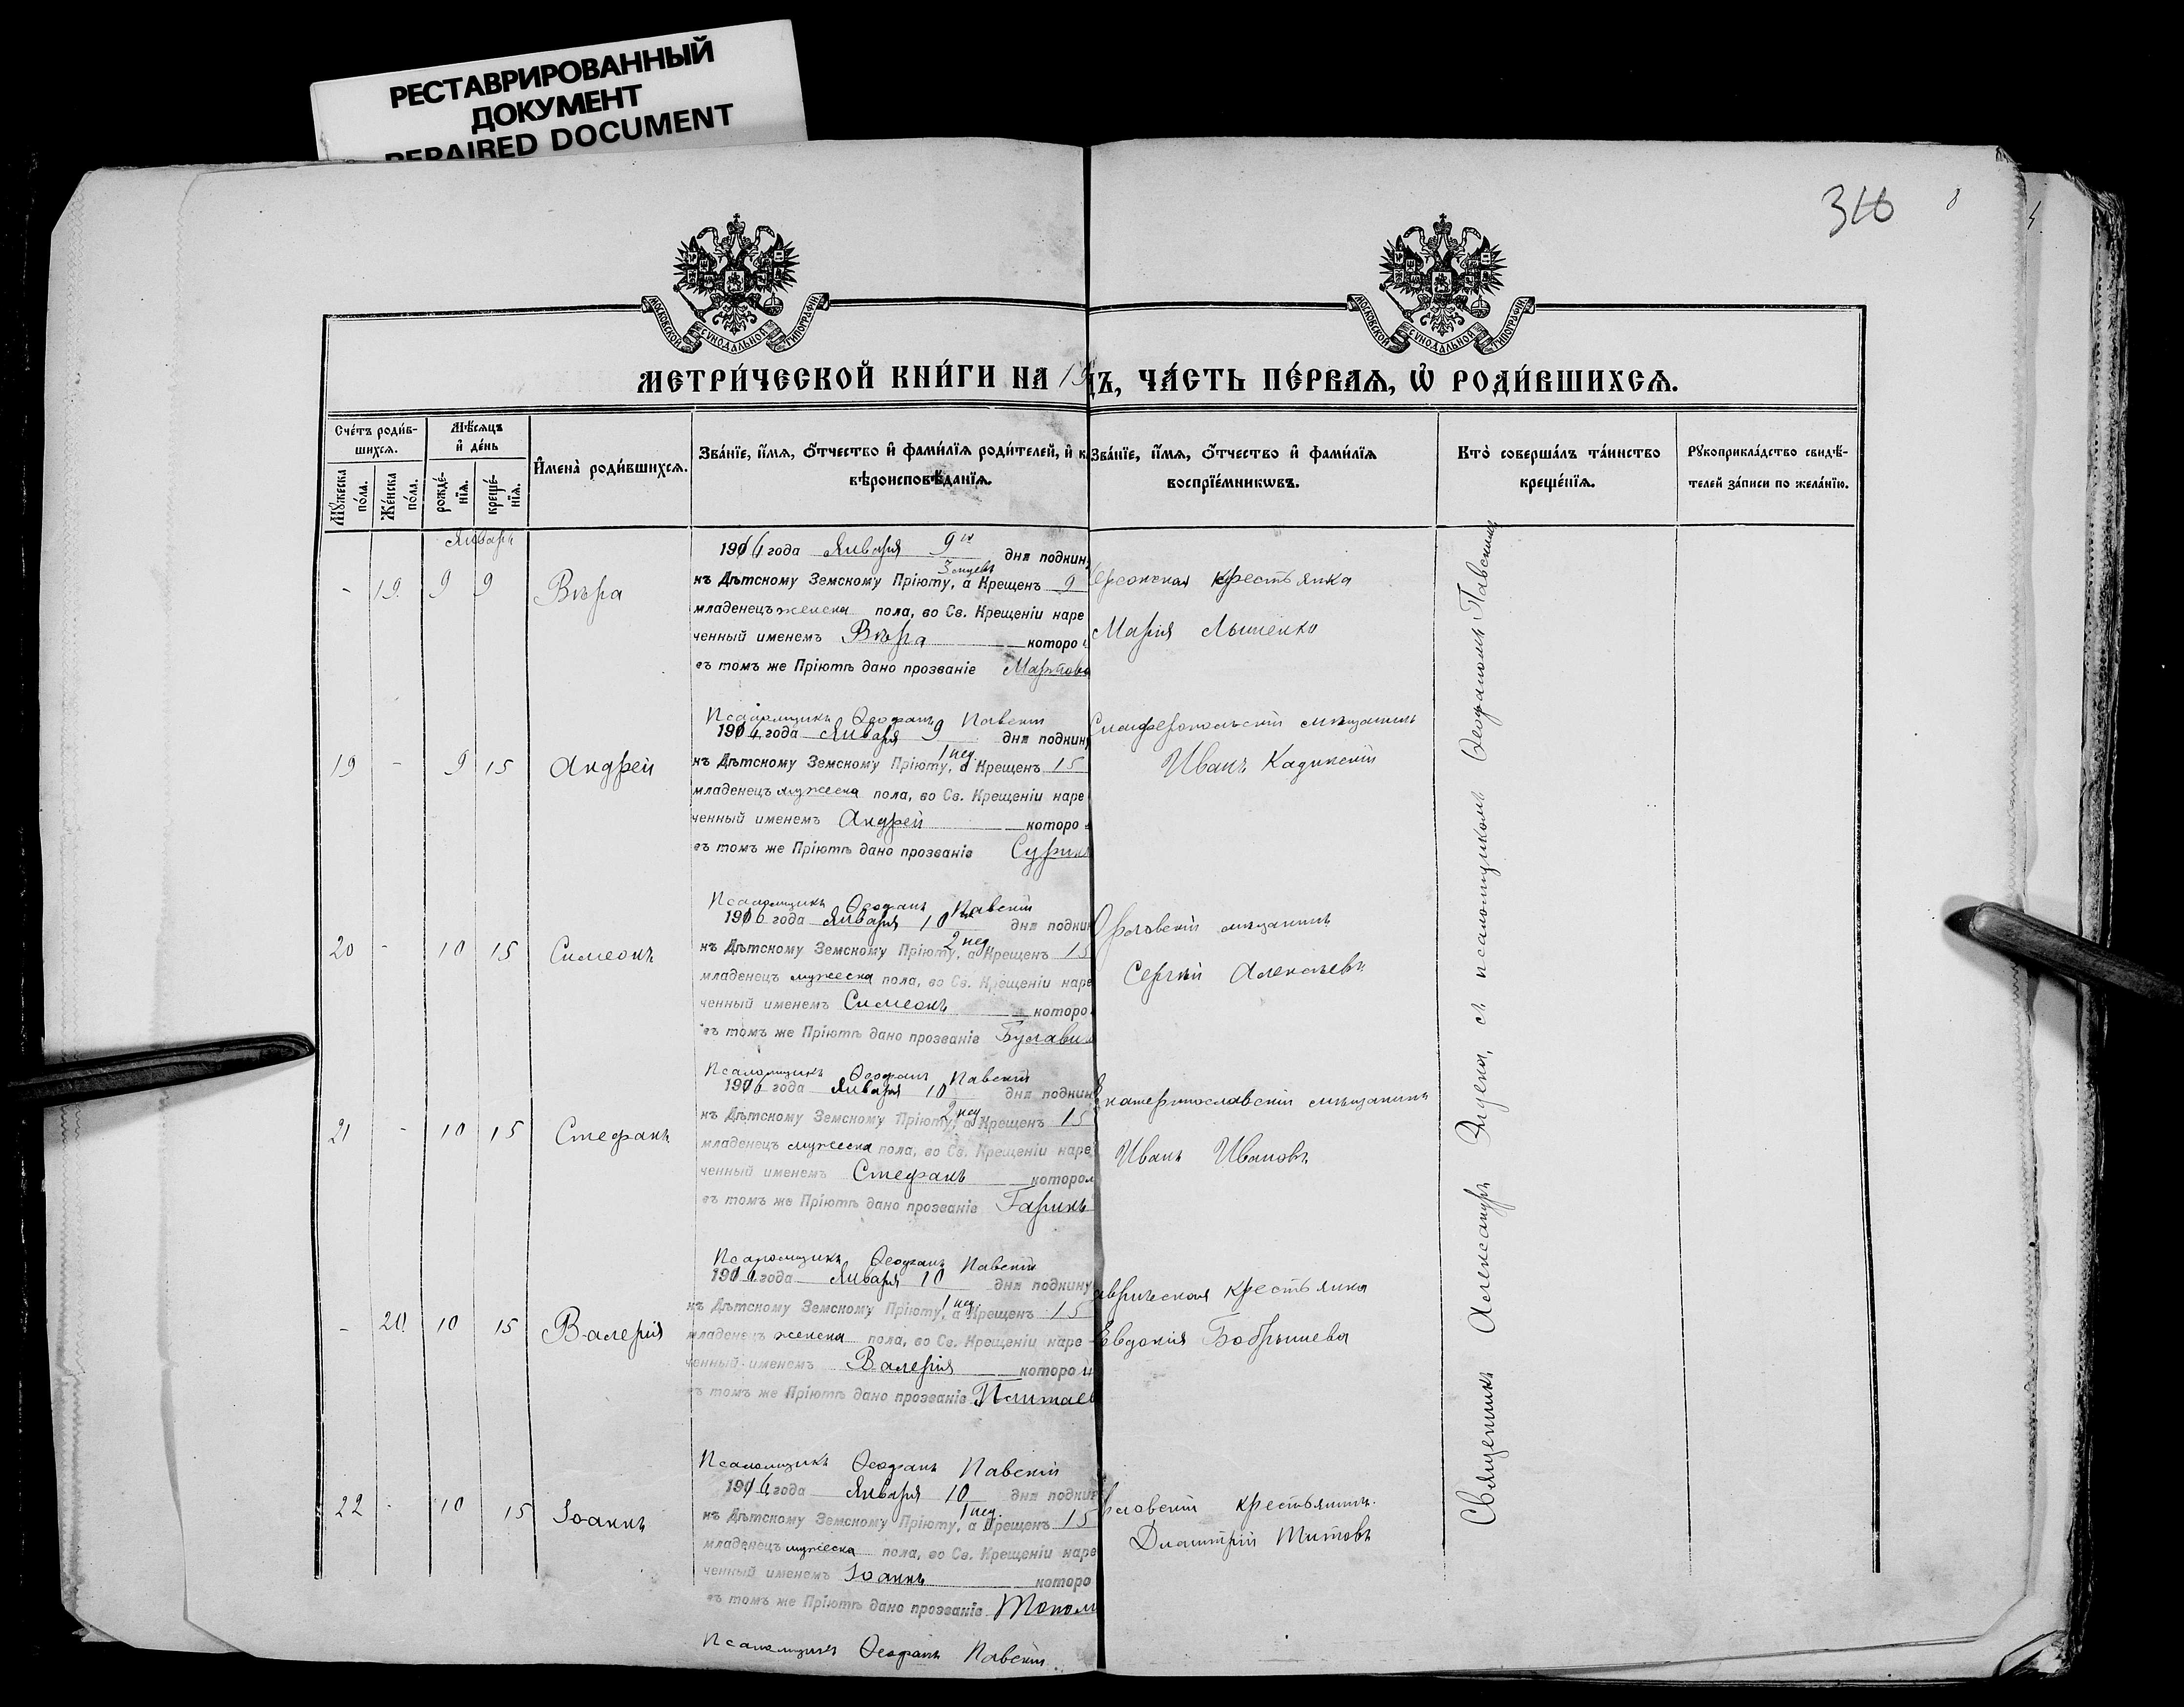 РЕСТАВРИРОВАННЫЙ
ДОКУМЕНТ
REPAIRED DOCUMENT
МОСКОВСКОЙ СѴНОДАЛЬНОЙ ТИПОГРАФІИ
МОСКОВСКОЙ СѴНОДАЛЬНОЙ ТИПОГРАФІИ
МЕТРИ́ЧЕСКОЙ КНИ́ГИ НА 19
ДЪ, ЧА́СТЬ ПЕ́РВАѦ, Ѡ҆ РОДИ́ВШИХСѦ.
Сче́тъ роди́в-
шихсѧ.
Мꙋ́жеска по́ла.
Же́нска по́ла.
Мѣ́сѧцъ
и҆ де́нь
рожде́-
нїѧ.
креще́-
нїѧ.
И҆мена̀ роди́вшихсѧ.
Зва́нїе, и҆́мѧ, ѻ҆́тчество и҆ фами́лїѧ роди́телей, и҆ к
вѣроисповѣ́данїѧ.
Зва́нїе, и҆́мѧ, ѻ҆́тчество и҆ фами́лїѧ
воспрїе́мникѡвъ.
Кто̀ соверша́лъ та́инство
креще́нїѧ.
Рꙋкоприкла́дство свидѣ́-
телей за́писи по жела́нїю.
Январь
- 19. 9 9 Вѣра
1916 года Января 9го дня подкин
къ Дѣтскому Земскому Пріюту, а Крещенъ 9
младенецъ женска пола, во Св. Крещеніи наре
ченный именемъ Вѣра которо
въ томъ же Пріютѣ дано прозваніе Мартова
Псаломщикъ Ѳеофанъ Павскій
крестьянка
Марія
19 - 9 15 Андрей
1916 года Января 9 дня подкин
къ Дѣтскому Земскому Пріюту, а Крещенъ 15
1 нед.
младенецъ мужеска пола, во Св. Крещеніи наре
ченный именемъ Андрей которо
въ томъ же Пріютѣ дано прозваніе Сурик
Псаломщикъ Ѳеофанъ Павскій
Симферопольскій мѣщанинъ
Иванъ Кадинскій
20 - 10 15 Симеонъ
1916 года Января 10 дня подкин
къ Дѣтскому Земскому Пріюту, а Крещенъ 15
2 нед
младенецъ мужеска пола, во Св. Крещеніи наре
ченный именемъ Симеонъ которо
въ томъ же Пріютѣ дано прозваніе Булави
Псаломщикъ Ѳеофанъ Павскій
Орловскій мѣщанинъ
Сергѣй Алексѣевъ
21 - 10 15 Стефанъ
1916 года Января 10 дня подкин
къ Дѣтскому Земскому Пріюту, а Крещенъ 15
2 нед
младенецъ мужеска пола, во Св. Крещеніи наре
ченный именемъ Стефанъ котором
въ томъ же Пріютѣ дано прозваніе Гаринъ
Псаломщикъ Ѳеофанъ Павскій
Екатеринославскій мѣщанинъ
Иванъ Ивановъ
- 20. 10 15 Валерія
1916 года Января 10 дня подкину
къ Дѣтскому Земскому Пріюту, а Крещенъ 15
1 нед
младенецъ женска пола, во Св. Крещеніи наре
ченный именемъ Валерія которой
въ томъ же Пріютѣ дано прозваніе
Псаломщикъ Ѳеофанъ Павскій
аврическая крестьянка
Евдокія Бобрышева
22 - 10 15 Іоаннъ
1916 года Января 10 дня подкин
къ Дѣтскому Земскому Пріюту, а Крещенъ 15
1 нед.
младенецъ мужеска пола, во Св. Крещеніи наре
ченный именемъ Іоаннъ которо
въ томъ же Пріютѣ дано прозваніе Топол
Псаломщикъ Ѳеофанъ Павскій
рловскій крестьянинъ.
Димитрій Титовъ
Священникъ Александръ Эндека, съ псаломщикомъ Ѳеофаномъ Павскимъ